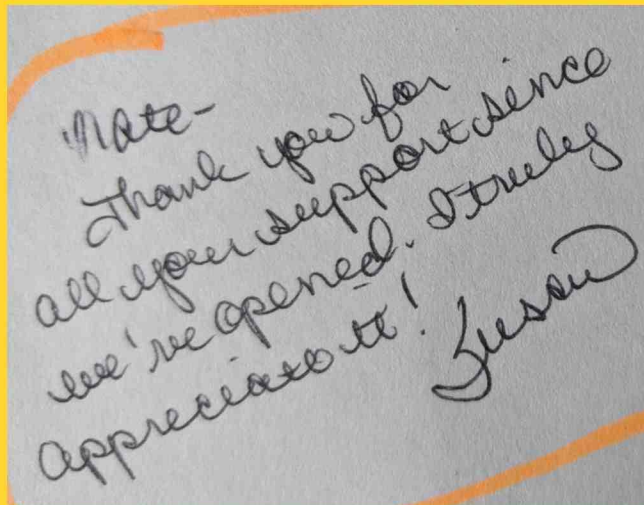 Nate-
Thank you for
all your support since
we've opened. I truly
appreciate it!
Susan